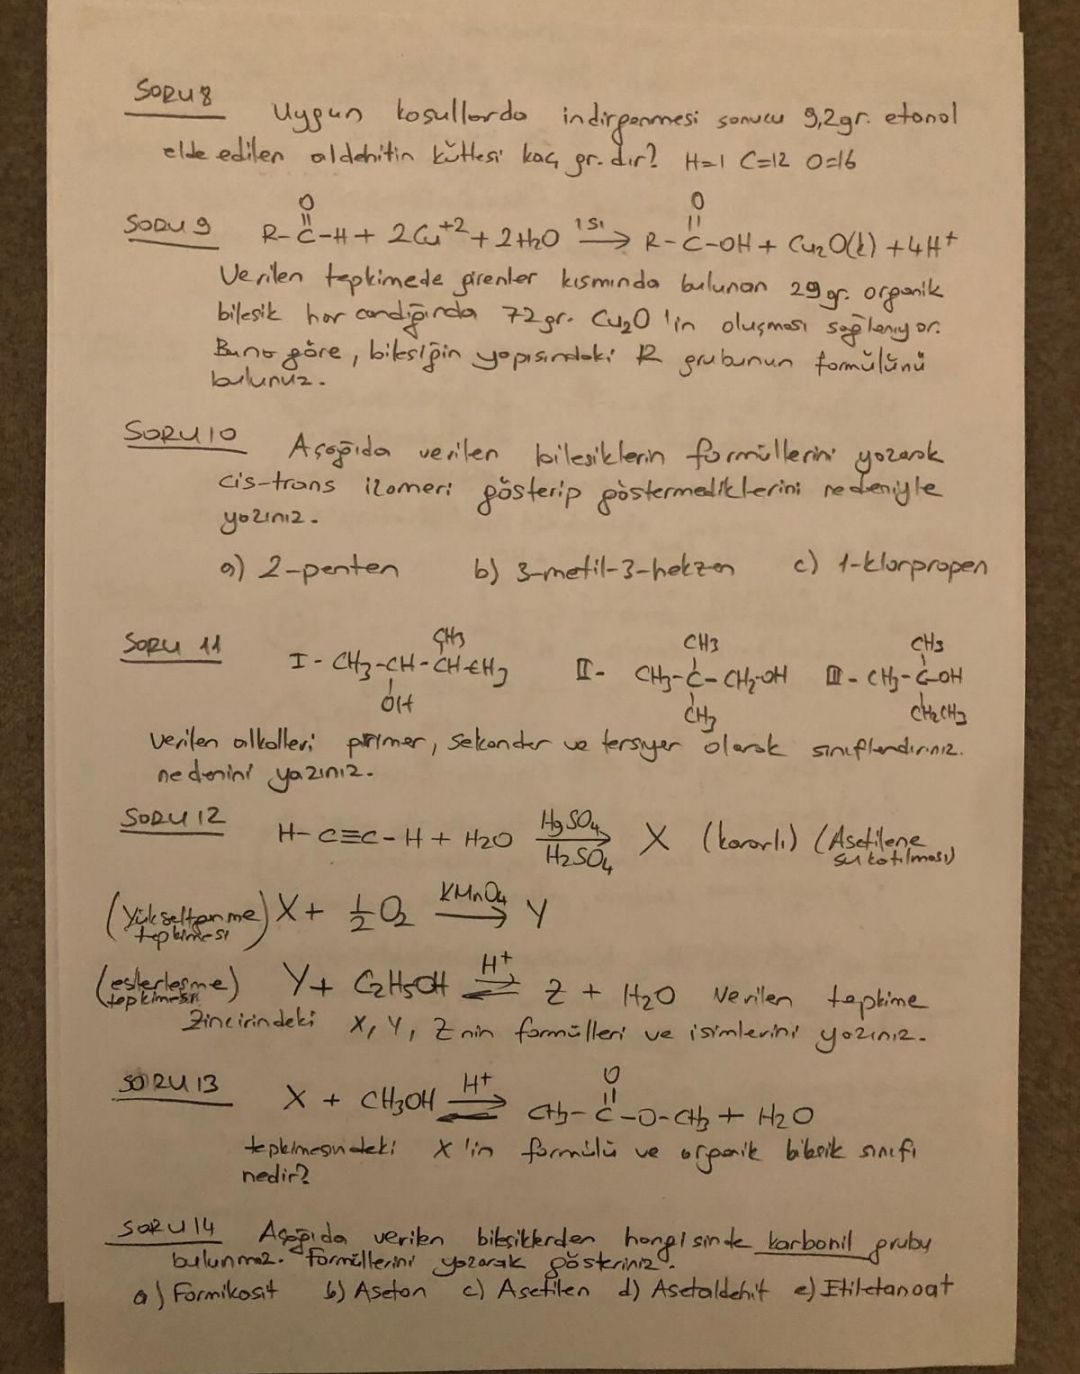 SORU 8 Uygun koşullarda indirgenmesi sonucu 9,2gr. etanol
elde edilen aldehitin kütlesi kaç gr. dır? H=1 C=12 O=16
SORU 9 R-C(=O)-H + 2Cu+2 + 2H2O ısı→ R-C(=O)-OH + Cu2O(k) + 4H+
Verilen tepkimede girenler kısmında bulunan 29gr. organik
bileşik harcandığında 72gr. Cu2O 'in oluşması sağlanıyor.
Buna göre, bileşiğin yapısındaki R grubunun formülünü
bulunuz.
SORU 10 Aşağıda verilen bileşiklerin formüllerini yazarak
cis-trans izomeri gösterip göstermediklerini nedeniyle
yazınız.
a) 2-penten b) 3-metil-3-hekzen c) 1-klorpropen
SORU 11
CH3 CH3 CH3
I- CH3-CH-CH-CH3 II- CH3-C-CH2-OH III- CH3-C-OH
OH CH3 CH2CH3
Verilen alkolleri primer, sekonder ve tersiyer olarak sınıflandırınız.
nedenini yazınız.
SORU 12 H-C≡C-H + H2O HgSO4/H2SO4→ X (kararlı) (Asetilene
su katılması)
(Yükseltgenme tepkimesi) X + 1/2 O2 KMnO4→ Y
(esterleşme tepkimesi) Y + C2H5OH H+⇌ Z + H2O Verilen tepkime
zincirindeki X, Y, Z nin formülleri ve isimlerini yazınız.
SORU 13 X + CH3OH H+⇌ CH3-C(=O)-O-CH3 + H2O
tepkimesindeki X'in formülü ve organik bileşik sınıfı
nedir?
SORU 14 Aşağıda verilen bileşiklerden hangisinde karbonil grubu
bulunmaz. Formüllerini yazarak gösteriniz.
a) Formikasit b) Aseton c) Asetilen d) Asetaldehit e) Etiletanoat